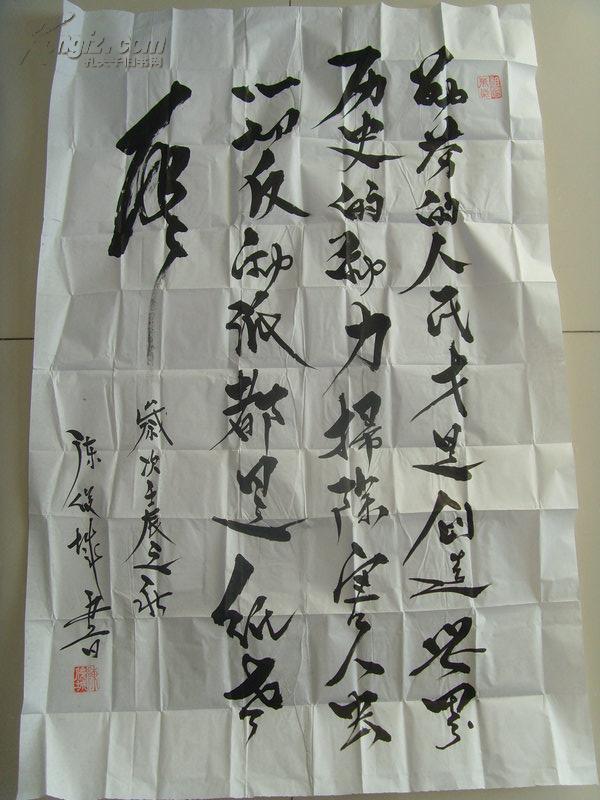 勤劳的人民才是创造世界
历史的动力掃除害人虫
一切反动派都是纸老
虎
歲次壬辰之秋
陈俊城書
Kongfz.com
孔夫子旧书网